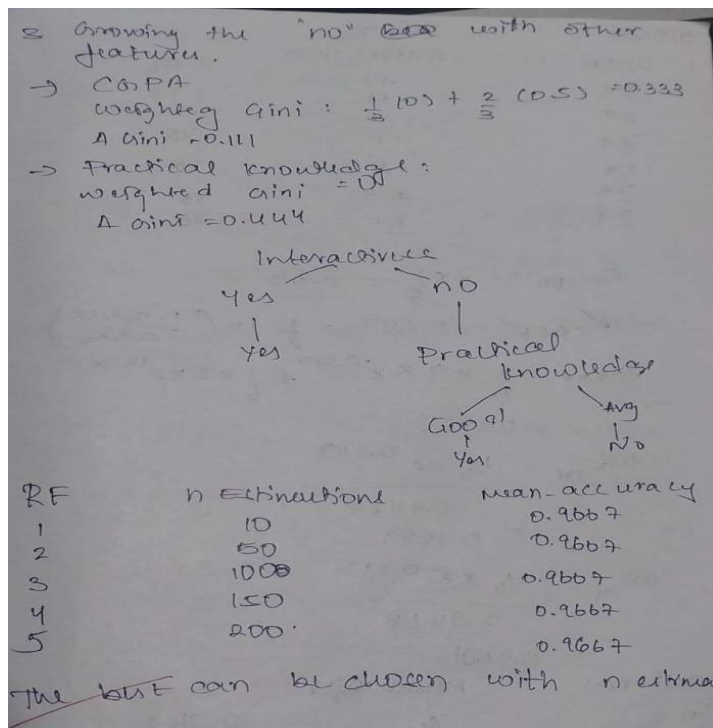 2 Growing the "no" with other
features.
→ CGPA
weighted Gini : 1/3 (0) + 2/3 (0.5) = 0.333
Δ Gini = 0.111
→ Practical knowledge :
weighted Gini = 0
Δ Gini = 0.444
Interactivece
Yes no
Yes Practical
knowledge
Good Avg
Yes No
RF n Mean-accuracy
1 10 0.9667
2 50 0.9667
3 1000 0.9667
4 150 0.9667
5 200 0.9667
The best can be chosen with n estima